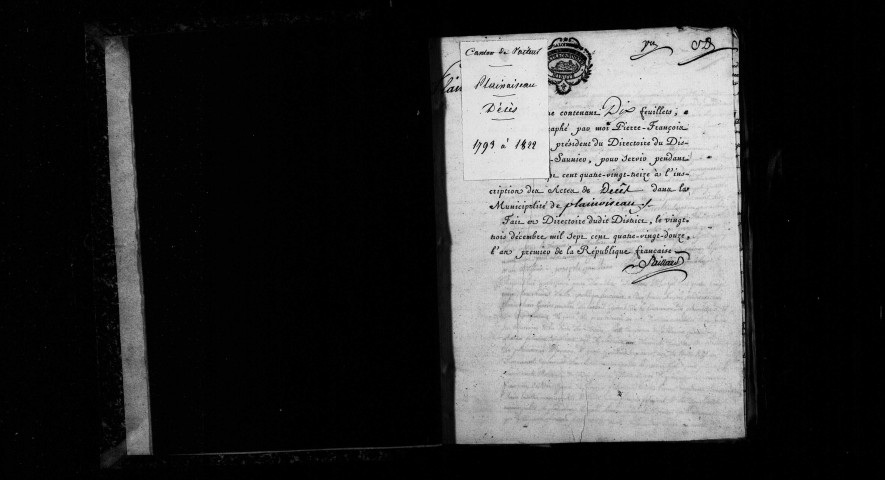 Canton de Voiteur
Plainoiseau
Décès
1793 à 1822
contenant Dix feuillets,
par moi Pierre-François
président du Directoire du Dis-
-Saunier, pour servir pendant
cent quatre-vingt-treize à l'ins-
cription des Actes de Décès dans la
Municipalité de plainoiseau
Fait en Directoire dudit District, le vingt
trois décembre mil sept cent quatre-vingt-douze,
l'an premier de la République française